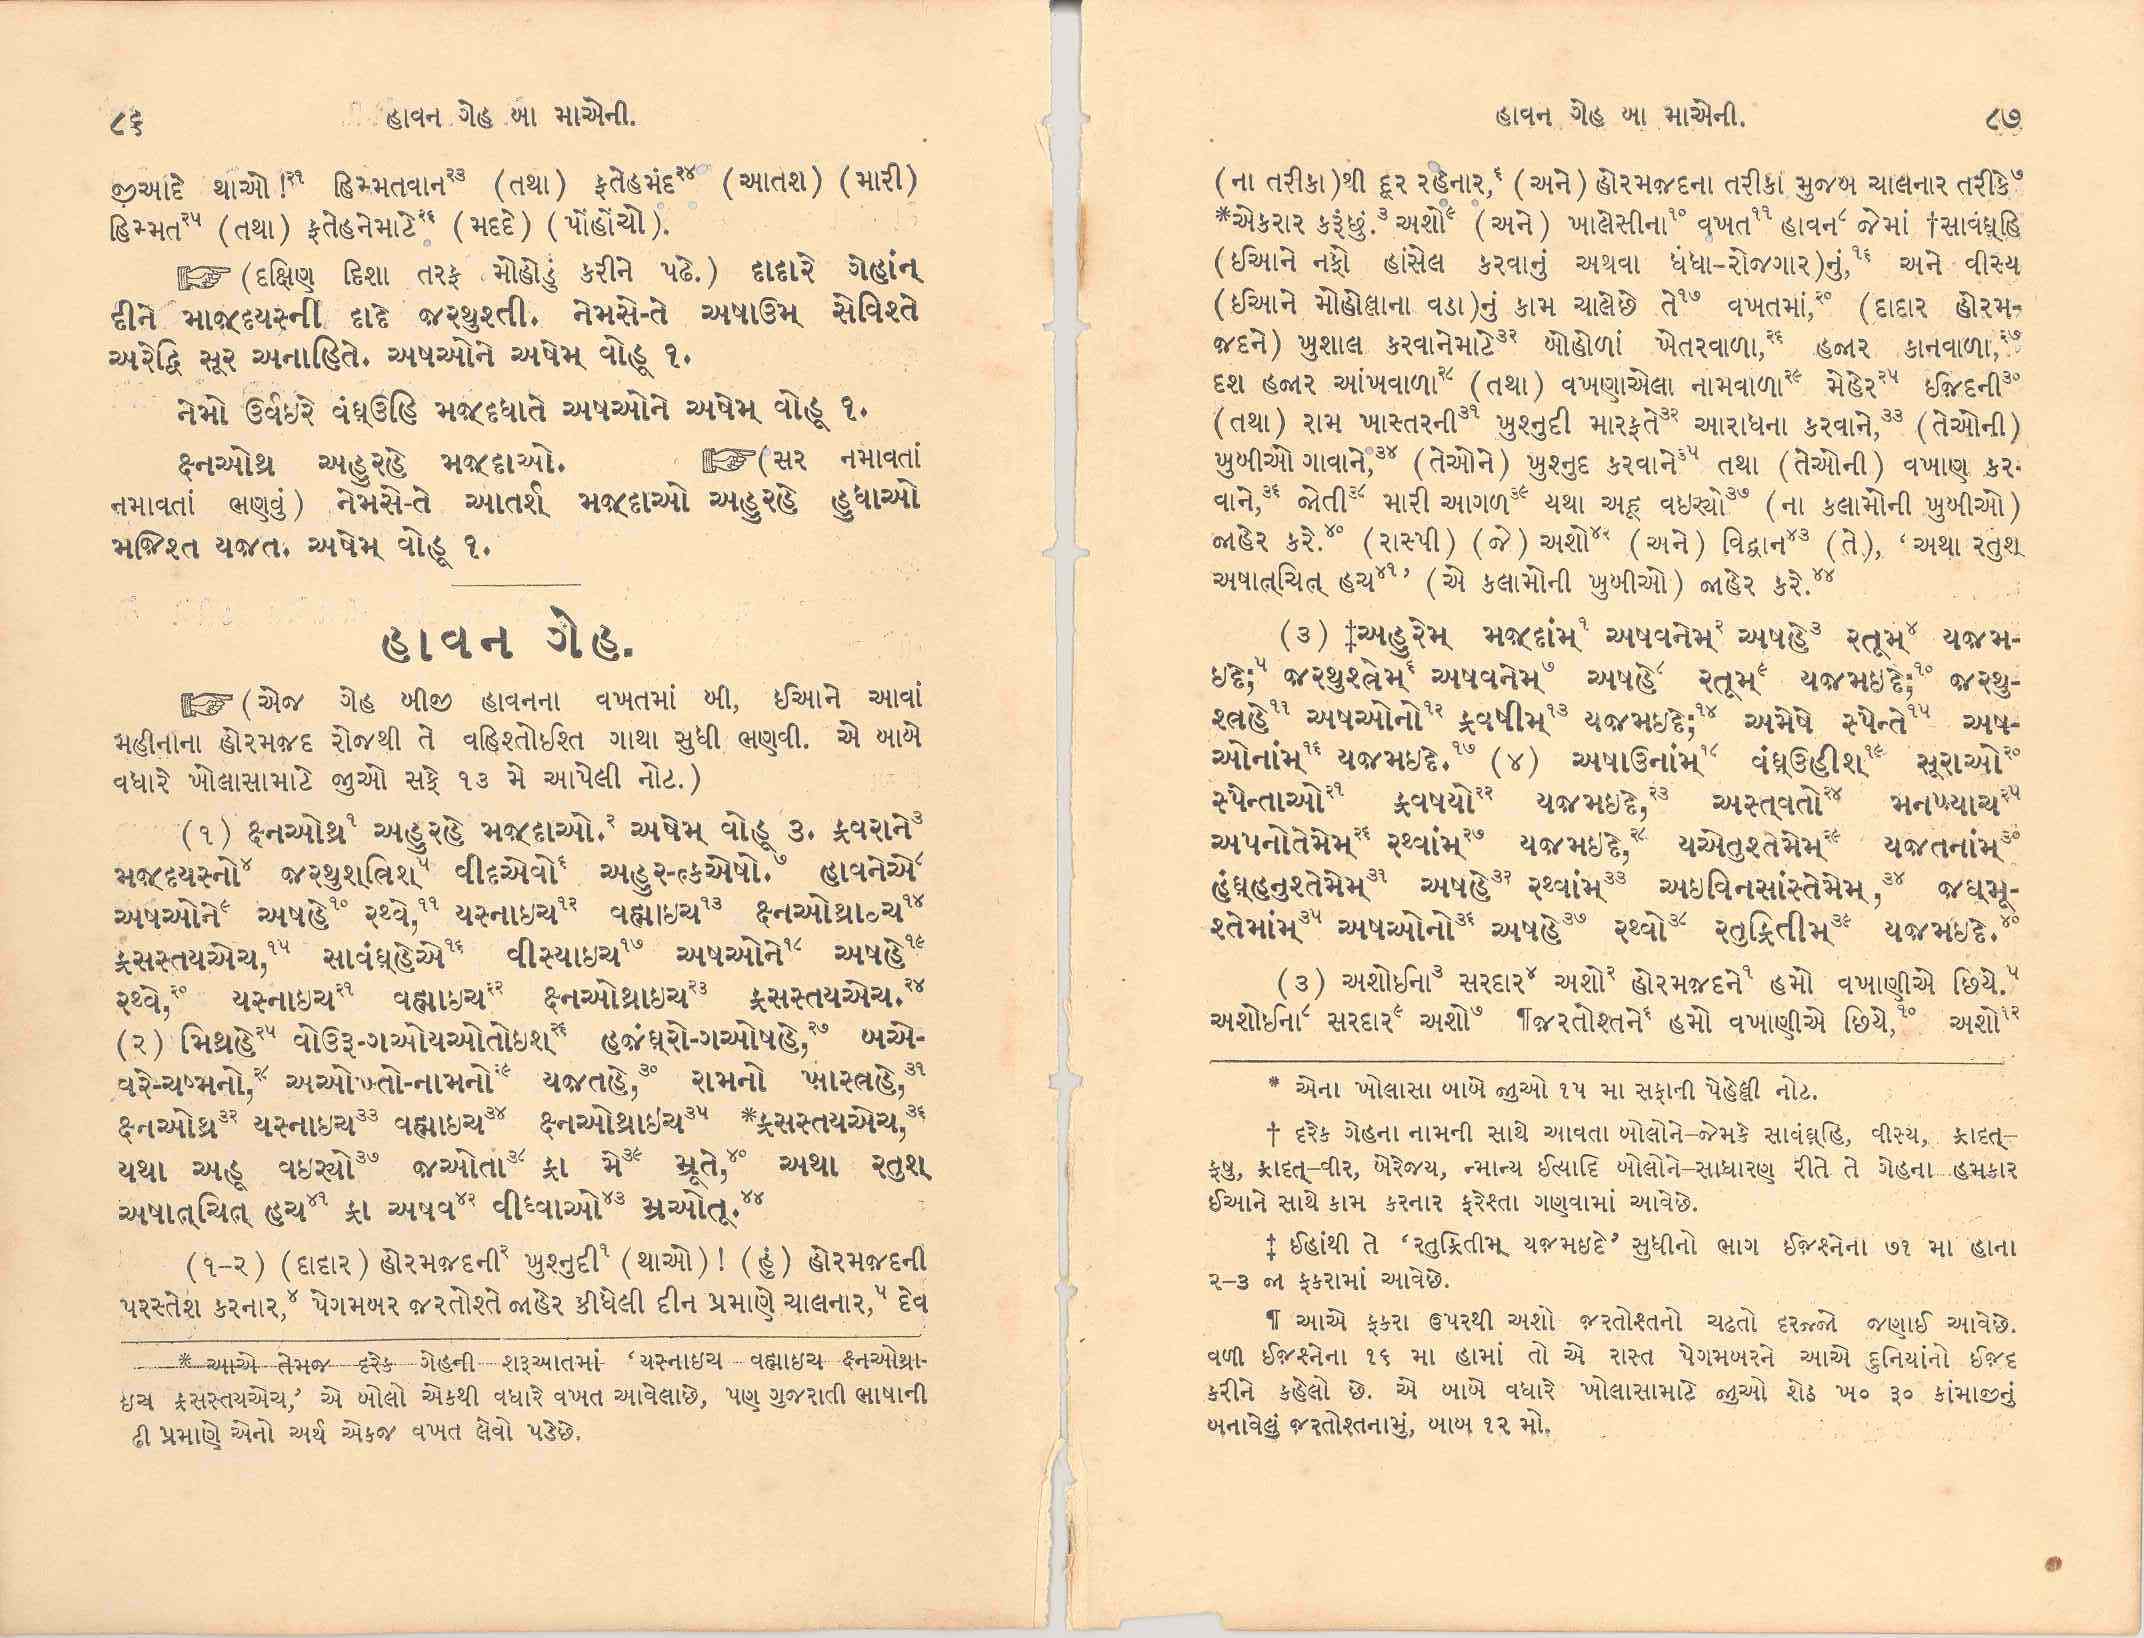 ૮૬ હાવન ગેહ બા માએની.
જીઆદે થાઓ!૨૧ હિમ્મતવાન૨૩ (તથા) ફતેહમંદ૨૪ (આતશ) (મારી)
હિમ્મત૨૫ (તથા) ફતેહનેમાટે૨૬ (મદદે) (પોંહોંચો).
(દક્ષિણ દિશા તરફ મોહોડું કરીને પઢે.) દાદારે ગેહાંન્
દીને માજ઼્દયસ્ની દાદે જ઼રથુશ્તી. નેમસે-તે અષાઉમ્ સેવિશ્તે
અરેદ્વિ સૂર અનાહિતે. અષઓને અષેમ્ વોહૂ ૧.
નેમો ઉર્વઇરે વંઘ્ર્ઉહિ મજ઼્દધાતે અષઓને અષેમ્ વોહૂ ૧.
ક્ષ્નઓથ્ર અહુરહે મજ઼્દાઓ. (સર નમાવતાં
નમાવતાં ભણવું) નેમસે-તે આતર્શ્ મજ઼્દાઓ અહુરહે હુધાઓ
મજ઼િશ્ત યજ઼ત. અષેમ્ વોહૂ ૧.
હાવન ગેહ.
(એજ ગેહ બીજી હાવનના વખતમાં બી, ઈઆને આવાં
મહીનાના હોરમજ઼દ રોજથી તે વહિશ્તોઇશ્ત ગાથા સુધી ભણવી. એ બાબે
વધારે ખોલાસામાટે જીઓ સફે ૧૩ મે આપેલી નોટ.)
(૧) ક્ષ્નઓથ્ર૧ અહુરહે મજ઼્દાઓ.૨ અષેમ્ વોહૂ ૩. ફ્રવરાને૩
મજ઼્દયસ્નો૪ જ઼રથુશ્ત્રિશ્૫ વીદએવો૬ અહુર-ત્કએષો.૭ હાવનેએ૮
અષઓને૯ અષહે૧૦ રથ્વે,૧૧ યસ્નાઇચ૧૨ વહ્માઇચ૧૩ ક્ષ્નઓથ્રાઇચ૧૪
ફ્રસસ્તયએચ,૧૫ સાવંઘ્ર્હેએ૧૬ વીસ્યાઇચ૧૭ અષઓને૧૮ અષહે૧૯
રથ્વે,૨૦ યસ્નાઇચ૨૧ વહ્માઇચ૨૨ ક્ષ્નઓથ્રાઇચ૨૩ ફ્રસસ્તયએચ.૨૪
(૨) મિથ્રહે૨૫ વોઉરૂ-ગઓયઓતોઇશ્૨૬ હજ઼ંઘ્ર્રો-ગઓષહે,૨૭ બએ-
વરે-ચષ્મનો,૨૮ અઓખ્તો-નામનો૨૯ યજ઼તહે,૩૦ રામનો ખ઼ાસ્ત્રહે,૩૧
ક્ષ્નઓથ્ર૩૨ યસ્નાઇચ૩૩ વહ્માઇચ૩૪ ક્ષ્નઓથ્રાઇચ૩૫ *ફ્રસસ્તયએચ,૩૬
યથા અહૂ વઇર્યો૩૭ જ઼ઓતા૩૮ ફ્રા મે૩૯ મ્રૂતે,૪૦ અથા રતુશ્
અષાત્ચિત્ હચ૪૧ ફ્રા અષવ૪૨ વીધ્વાઓ૪૩ મ્રઓતૂ.૪૪
(૧-૨) (દાદાર) હોરમજ઼દની૨ ખુશ્નુદી૧ (થાઓ)! (હું) હોરમજ઼દની
પરસ્તેશ કરનાર,૪ પેગમબર જ઼રતોશ્તે જાહેર કીધેલી દીન પ્રમાણે ચાલનાર,૫ દેવ
* આએ તેમજ દરેક ગેહની શરૂઆતમાં ‘યસ્નાઇચ વહ્માઇચ ક્ષ્નઓથ્રા-
ઇચ ફ્રસસ્તયએચ,’ એ બોલો એકથી વધારે વખત આવેલાછે, પણ ગુજરાતી ભાષાની
ઢી પ્રમાણે એનો અર્થ એકજ વખત લેવો પડેછે.
હાવન ગેહ બા માએની. ૮૭
(ના તરીકા)થી દૂર રહેનાર,૬ (અને) હોરમજ઼દના તરીકા મુજબ ચાલનાર તરીકે૭
*એકરાર કરૂંછું.૩ અશો૯ (અને) ખાલેસીના૧૦ વખત૧૧ હાવન૮ જેમાં †સાવંઘ્ર્હિ
(ઈઆને નફો હાંસેલ કરવાનું અથવા ધંધા-રોજગાર)નું,૧૬ અને વીસ્ય
(ઈઆને મોહોલાના વડા)નું કામ ચાલેછે તે૧૭ વખતમાં,૨૦ (દાદાર હોરમ-
જ઼દને) ખુશાલ કરવાનેમાટે૩૨ બોહોળાં ખેતરવાળા,૨૬ હજાર કાનવાળા,૨૭
દશ હજાર આંખવાળા૨૮ (તથા) વખણાએલા નામવાળા૨૯ મેહેર૨૫ ઈજ઼દની૩૦
(તથા) રામ ખાસ્તરની૩૧ ખુશ્નુદી મારફતે૩૨ આરાધના કરવાને,૩૩ (તેઓની)
ખુબીઓ ગાવાને,૩૪ (તેઓને) ખુશ્નુદ કરવાને૩૫ તથા (તેઓની) વખાણ કર-
વાને,૩૬ જોતી૩૮ મારી આગળ૩૯ યથા અહૂ વઇર્યો૩૭ (ના કલામોની ખુબીઓ)
જાહેર કરે.૪૦ (રાસ્પી) (જે) અશો૪૨ (અને) વિદ્વાન૪૩ (તે), ‘અથા રતુશ્
અષાત્ચિત્ હચ૪૧’ (એ કલામોની ખુબીઓ) જાહેર કરે.૪૪
(૩) ‡અહુરેમ્ મજ઼્દાંમ્૧ અષવનેમ્૨ અષહે૩ રતૂમ્૪ યજ઼મ-
ઇદે;૫ જ઼રથુશ્ત્રેમ્૬ અષવનેમ્૭ અષહે૮ રતૂમ્૯ યજ઼મઇદે;૧૦ જ઼રથુ-
શ્ત્રહે૧૧ અષઓનો૧૨ ફ્રવષીમ્૧૩ યજ઼મઇદે;૧૪ અમેષે સ્પેન્તે૧૫ અષ-
ઓનાંમ્૧૬ યજ઼મઇદે.૧૭ (૪) અષાઉનાંમ્૧૮ વંઘ્ર્ઉહીશ્૧૯ સૂરાઓ૨૦
સ્પેન્તાઓ૨૧ ફ્રવષયો૨૨ યજ઼મઇદે,૨૩ અસ્ત્વતો૨૪ મનખ઼્યાચ૨૫
અપનોતેમેમ્૨૬ રથ્વાંમ્૨૭ યજ઼મઇદે,૨૮ યએતુશ્તેમેમ્૨૯ યજ઼તનાંમ્૩૦
હંઘ્ર્હનુશ્તેમેમ્૩૧ અષહે૩૨ રથ્વાંમ્૩૩ અઇવિનસાંસ્તેમેમ્,૩૪ જઘ્મૂ-
શ્તેમાંમ્૩૫ અષઓનો૩૬ અષહે૩૭ રથ્વો૩૮ રતુફ્રિતીમ્૩૯ યજ઼મઇદે.૪૦
(૩) અશોઈના૩ સરદાર૪ અશો૨ હોરમજ઼દને૧ હમો વખાણીએ છિયે.૫
અશોઈના૮ સરદાર૯ અશો૭ ¶જ઼રતોશ્તને૬ હમો વખાણીએ છિયે,૧૦ અશો૧૨
* એના ખોલાસા બાબે જીઓ ૧૫ મા સફાની પેહેલ્લી નોટ.
† દરેક ગેહના નામની સાથે આવતા બોલોને-જેમકે સાવંઘ્ર્હિ, વીસ્ય, ફ્રાદત્-
ફ્ષુ, ફ્રાદત્-વીર, બેરેજય, ન્માન્ય ઈત્યાદિ બોલોને-સાધારણ રીતે તે ગેહના હમકાર
ઈઆને સાથે કામ કરનાર ફરેશ્તા ગણવામાં આવેછે.
‡ ઈહાંથી તે ‘રતુફ્રિતીમ્ યજ઼મઇદે’ સુધીનો ભાગ ઈજ઼શ્નેના ૭૧ મા હાના
૨-૩ જા ફકરામાં આવેછે.
¶ આએ ફકરા ઉપરથી અશો જ઼રતોશ્તનો ચઢતો દરજ્જો જણાઈ આવેછે.
વળી ઈજ઼શ્નેના ૧૬ મા હામાં તો એ રાસ્ત પેગમબરને આએ દુનિયાંનો ઈજ઼દ
કરીને કહેલો છે. એ બાબે વધારે ખોલાસામાટે જીઓ શેઠ ખ૦ રૂ૦ કાંમાજીનું
બનાવેલું જ઼રતોશ્તનામું, બાબ ૧૨ મો.